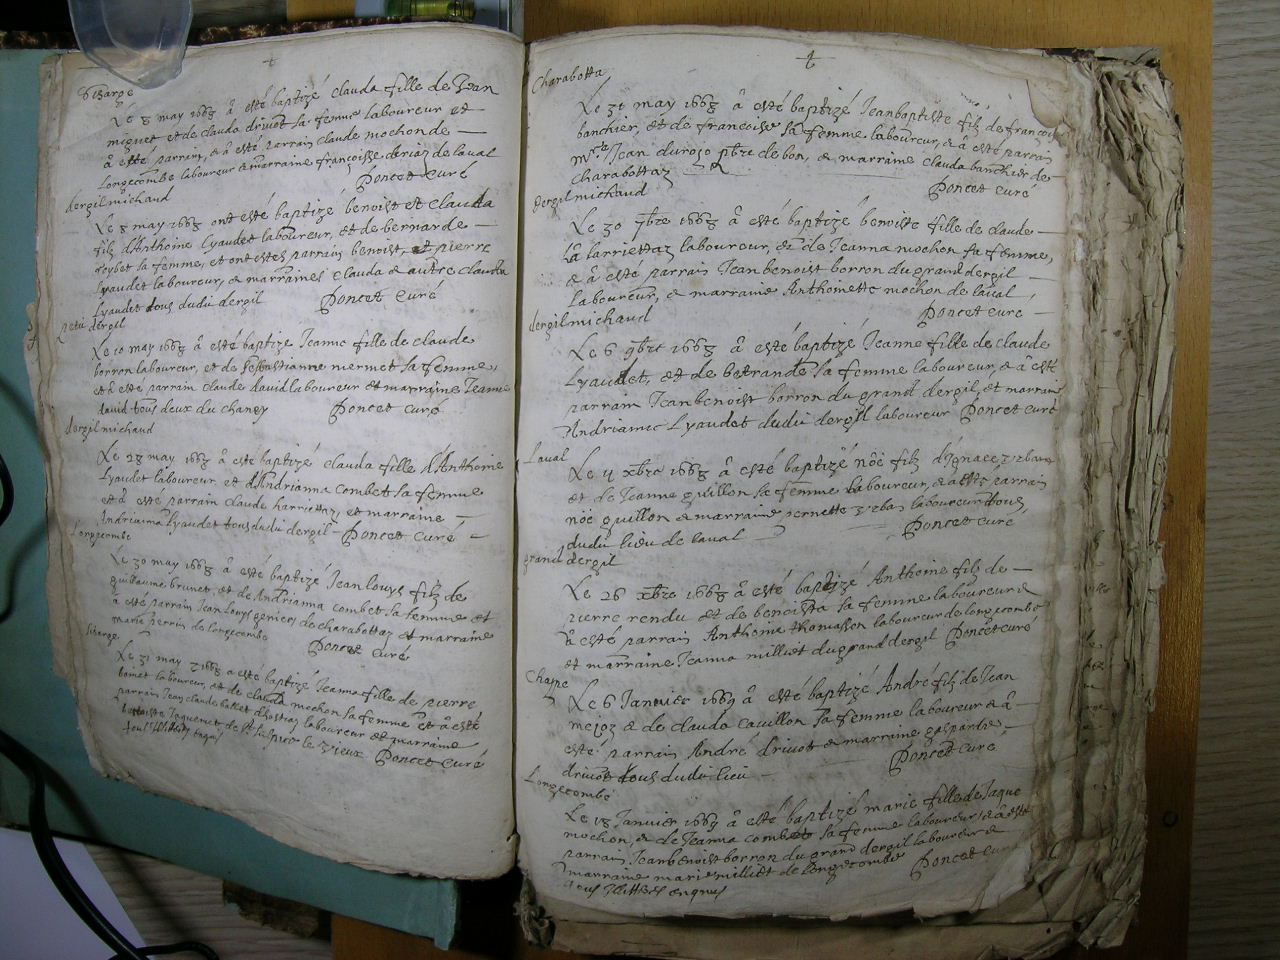 Le 8 may 1668 â esté baptizé clauda fille de Jean
miguet et de clauda drivot sa femme laboureur et
â esté parrin, & â esté parrain claude mochon de
Longecombe laboureur & marraine françoise de laval
Poncet Curé
dergil michaud
Le 8 may 1668 ont esté baptizé benoist et clauda
filz d'Anthoine Lyaudet laboureur, et de bernarde
roybet sa femme, et ont estes parrain benoist, et pierre
Lyaudet laboureur, & marraines clauda & autre clauda
Lyaudet tous dudit dergil Poncet Curé
petit dergil
Le 10 may 1668 â esté baptizé Jeanne fille de claude
borron laboureur, et de Sebastianne mermet sa femme,
et â esté parrain claude david laboureur et marraine Jeanne
david tous deux du chaney Poncet Curé
dergil michaud
Le 28 may 1668 â esté baptizé clauda fille d'Anthoine
Lyaudet laboureur, et d'Andrianna combet sa femme
et â esté parrain claude harriettaz, et marraine
Andrianna Lyaudet tous dudit dergil Poncet Curé
Longecombe
Le 30 may 1668 â esté baptizé Jean louys filz de
guillaume brunet, et de Andrianna combet sa femme et
â esté parrain Jean Louys genies, de charabottaz et marraine
marie perrin de longecombe Poncet Curé
Le 31 may 1668 â esté baptizé Jeanna fille de pierre
laboureur, et de clauda mochon sa femme et â esté
parrain Jean claude ballet d'hostiaz laboureur et marraine
Poncet Curé
Charabotta
Le 31 may 1668 â esté baptizé Jean baptiste filz de françois
banchier, et de françoise sa femme laboureur, & â esté parrain
mre Jean pbre de bon, & marraine clauda banchier de
charabottaz
Poncet Curé
dergil michaud
Le 30 7bre 1668 â esté baptizé benoiste fille de claude
la harriettaz laboureur, & de Jeanna mochon sa femme,
& â esté parrain Jean benoist borron du grand dergil
laboureur, & marraine Anthoinette mochon de laval
Poncet Curé
dergil michaud
Le 6 9bre 1668 â esté baptizé Jeanne fille de claude
Lyaudet, et de betrande sa femme laboureur, & â esté
parrain Jean benoist borron du grand dergil, et marraine
Andrianne Lyaudet dudit dergil laboureur Poncet Curé
Laval
Le 11 xbre 1668 â esté baptizé nöé filz d'Ignace
et de Jeanne guillon sa femme laboureur, & â esté parrain
nöé guillon & marraine pernette laboureur tous
dudit lieu de laval Poncet Curé
grand dergil
Le 26 xbre 1668 â esté baptizé Anthoine filz de
pierre rendu et de benoiste sa femme laboureur &
â esté parrain Anthoine thomasson laboureur de longecombe
et marraine Jeanna milliet du grand dergil Poncet Curé
Le 6 Janvier 1669 â esté baptizé André filz de Jean
mejoz & de clauda cavillon sa femme laboureur & â
esté parrain André drivot & marraine gasparde
drivot tous dudit lieu Poncet Curé
Longecombe
Le 18 Janvier 1669 â esté baptizé marie fille de Jaque
mochon, & de Jeanna combet sa femme laboureur & â esté
parrain Jean benoist borron du grand dergil laboureur &
marraine marie milliet de longecombe Poncet Curé
tous illitterés enquis